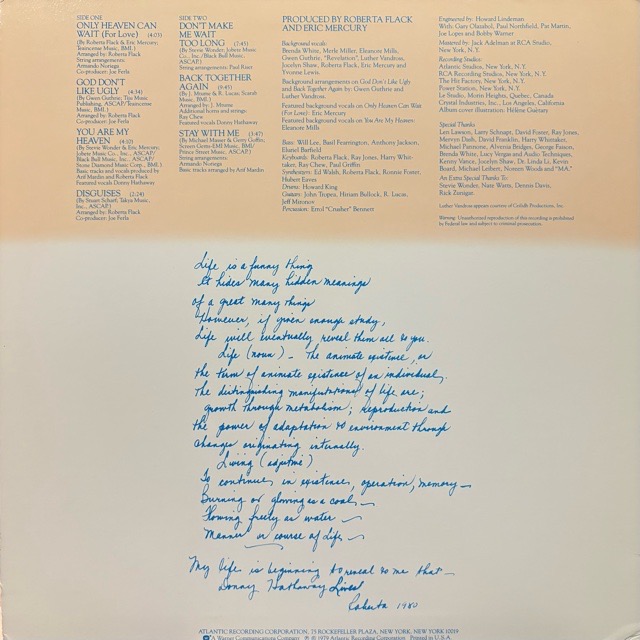 SIDE ONE
ONLY HEAVEN CAN
WAIT (For Love) (4:03)
(By Roberta Flack & Eric Mercury;
Arranged by: Roberta Flack
String arrangements:
Armando Noriega
Co-producer: Joe Ferla
GOD DON'T
LIKE UGLY (4:34)
(By Gwen Guthrie;
Arranged by: Roberta Flack
Co-producer: Joe Ferla
YOU ARE MY
HEAVEN (4:10)
(By Stevie Wonder & Eric Mercury;
Black Bull Music, Inc., ASCAP/
Basic tracks and vocals produced by
Arif Mardin and Roberta Flack
Featured vocals Donny Hathaway
DISGUISES (2:24)
(By Stuart Scharf;
Inc., ASCAP)
Arranged by: Roberta Flack
Co-producer: Joe Ferla
SIDE TWO
DON'T MAKE
ME WAIT
TOO LONG (7:45)
(By Stevie Wonder; Jobete Music
Co., Inc./Black Bull Music,
ASCAP)
String arrangements: Paul Riser
BACK TOGETHER
AGAIN (9:45)
(By J. Mtume & R. Lucas; Scarab
Music, BMI)
Arranged by: J. Mtume
Additional horns and strings:
Ray Chew
Featured vocals Donny Hathaway
STAY WITH ME (3:47)
(By Michael Masser & Gerry Goffin;
Screen Gems-EMI Music, BMI/
Prince Street Music, ASCAP)
String arrangements:
Armando Noriega
Basic tracks arranged by Arif Mardin
PRODUCED BY ROBERTA FLACK
AND ERIC MERCURY
Background vocals:
Brenda White, Merle Miller, Eleanore Mills,
Gwen Guthrie, "Revelation", Luther Vandross,
Jocelyn Shaw, Roberta Flack, Eric Mercury and
Yvonne Lewis.
Background arrangements on God Don's Like Ugly
and Back Together Again by: Gwen Guthrie and
Luther Vandross.
Featured background vocals on Only Heaven Can Wait
(For Love): Eric Mercury
Featured background vocals on You Are My Heaven:
Eleanore Mills
Bass: Will Lee, Basil Fearrington, Anthony Jackson,
Eluriel Barfield
Keyboards: Roberta Flack, Ray Jones, Harry Whitaker,
Ray Chew, Paul Griffin
Synthesizers: Ed Walsh, Roberta Flack, Ronnie Foster,
Hubert Eaves
Drums: Howard King
Guitars: John Tropea, Hiram Bullock, R. Lucas,
Jeff Mironov
Percussion: Errol "Crusher" Bennett
Engineered by: Howard Lindeman
With: Gary Olazabal, Paul Northfield, Pat Martin,
Joe Lopes and Bobby Warner
Mastered by: Jack Adelman at RCA Studio,
New York, N.Y.
Recording Studios:
Atlantic Studios, New York, N.Y.
RCA Recording Studios, New York, N.Y.
The Hit Factory, New York, N.Y.
Power Station, New York, N.Y.
Le Studio, Morin Heights, Quebec, Canada
Crystal Industries, Inc., Los Angeles, California
Album cover illustration: Hélène Guétary
Special Thanks:
Len Lawson, Larry Schnapf, David Foster, Ray Jones,
Mervyn Dash, David Franklin, Harry Whitaker,
Michael Pannone, Alvenia Bridges, George Faison,
Brenda White, Lucy Vargas and Audio Techniques,
Kenny Vance, Jocelyn Shaw, Dr. Linda Li, Kevin
Board, Michael Leibert, Noreen Woods and "MA."
An Extra Special Thanks To:
Stevie Wonder, Nate Watts, Dennis Davis,
Rick Zunigar
Luther Vandross appears courtesy of Cotillion Productions, Inc.
Warning: Unauthorized reproduction of this recording is prohibited
by Federal law and subject to criminal prosecution.
Life is a funny thing
It hides many hidden meanings
of a great many things
However, if given enough study,
Life will eventually reveal them all to you.
Life (noun) – The animate existence, or
the term of animate existence of an individual,
The distinguishing manifestations of life are;
growth through metabolism; reproduction and
the power of adaptation to environment through
changes originating internally.
Living (adjective)
To continue in existence, operation, memory –
Burning or glowing as a coal –
Flowing freely as water –
Manner or course of Life –
My life is beginning to reveal to me that –
Donny Hathaway Lives!
Roberta 1980
ATLANTIC RECORDING CORPORATION, 75 ROCKEFELLER PLAZA, NEW YORK, NEW YORK 10019
A Warner Communications Company ℗ © 1979 Atlantic Recording Corporation Printed in U.S.A.